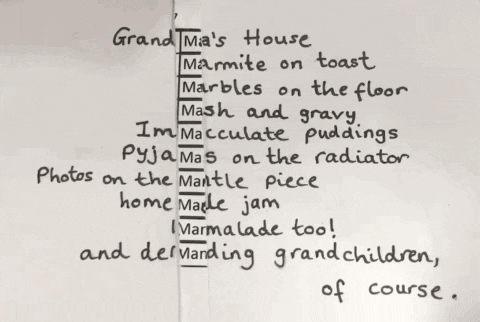 GrandMa's House
Marmite on toast
Marbles on the floor
Mash and gravy
Immacculate puddings
Pyjamas on the radiator
Photos on the Mantle piece
home Made jam
Marmalade too!
and demanding grandchildren,
of course.